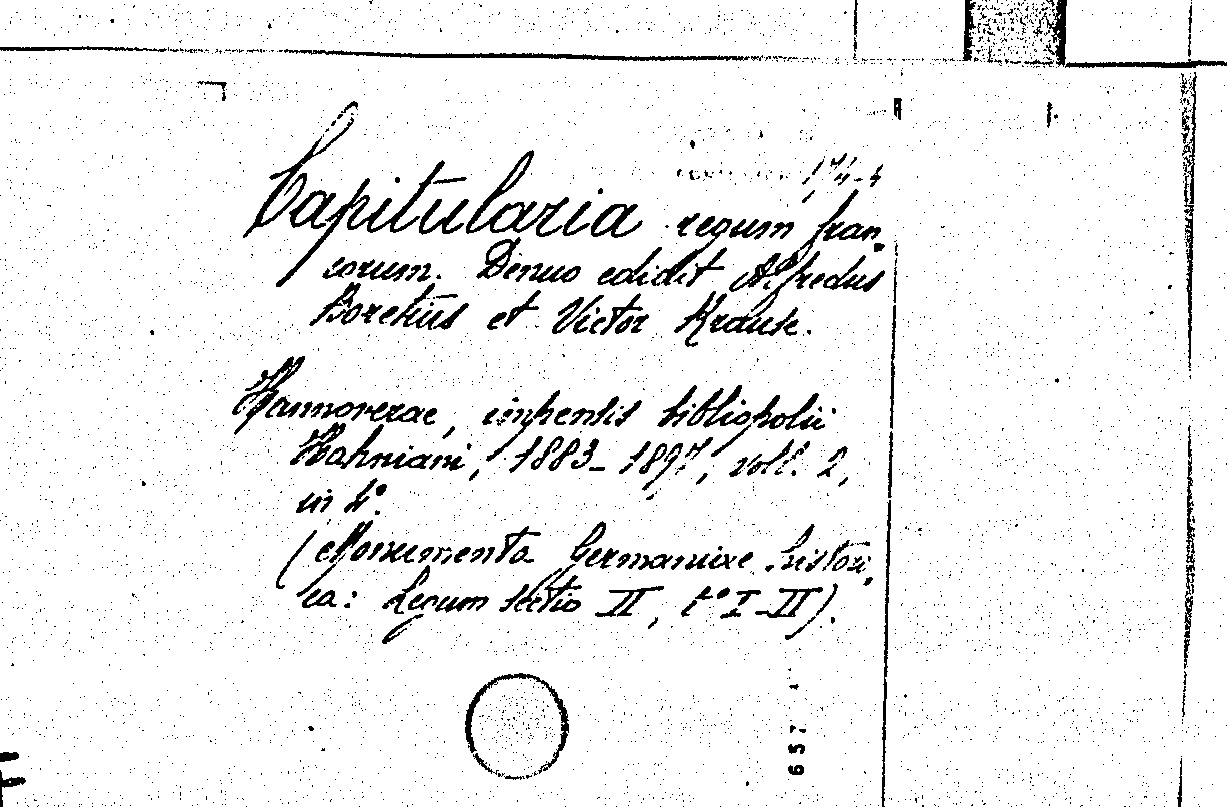 Capitularia regum fran-
corum. Denuo edidit Alfredus
Boretius et Victor Krause.
Hannoverae, impensis bibliopolii
Hahniani, 1883-1897, voll. 2,
in 4º.
(Monumenta Germaniae histori-
ca: Legum sectio II, tº I-II).
657